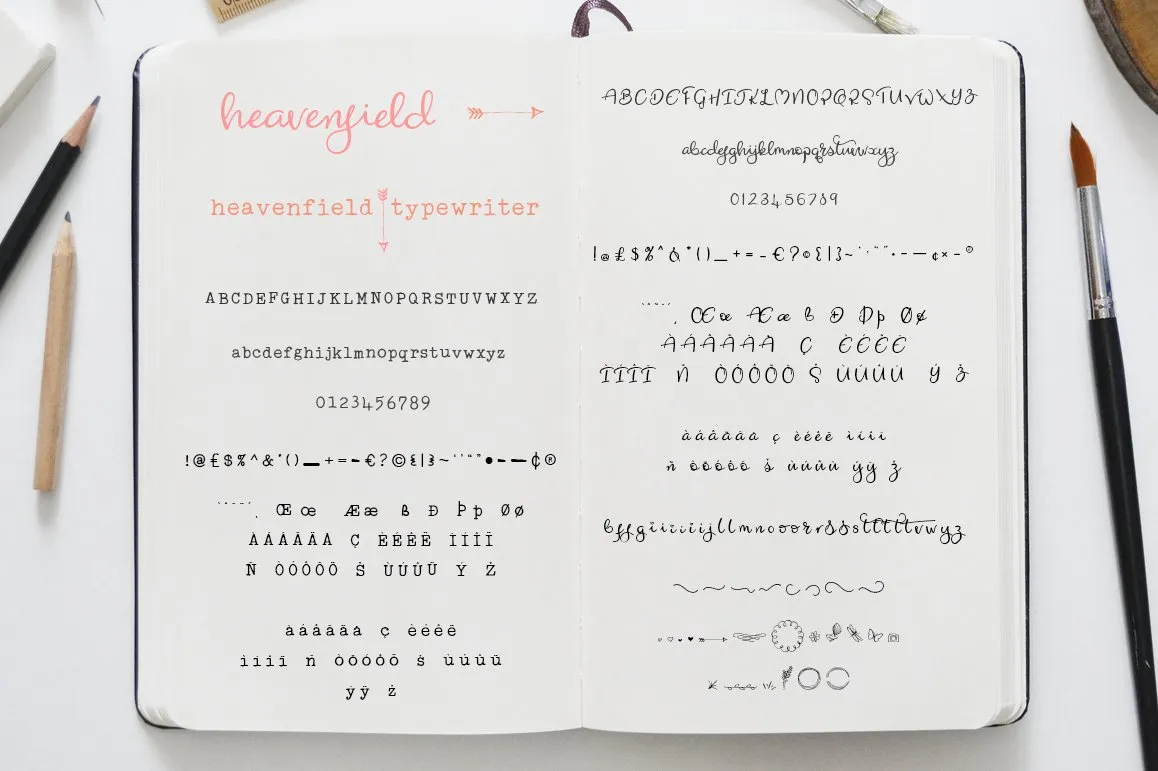 heavenfield
heavenfield typewriter
ABCDEFGHIJKLMNOPQRSTUVWXYZ
abcdefghijklmnopqrstuvwxyz
0123456789
!@£$%^&*()_+=-€?©{|}~''""•–—¢®
Œœ Ææ ß Ð Þþ Øø
ÀÁÂÄÃÅ Ç ÈÉÊË ÌÍÎÏ
Ñ ÒÓÔÖÕ Š ÙÚÛÜ Ý Ž
àáâäãå ç èéêë
ìíîï ñ òóôöõ š ùúûü
ýÿ ž
ABCDEFGHIJKLMNOPQRSTUVWXYZ
abcdefghijklmnopqrstuvwxyz
0123456789
!@£$%^&*()_+=-€?©{|}~''""•–—¢×-®
Œœ Ææ ß Ð Þþ Øø
ÀÁÂÄÃÅ Ç ÈÉÊË
ÌÍÎÏ Ñ ÒÓÔÖÕ Š ÙÚÛÜ Ý Ž
àáâäãå ç èéêë ìíîï
ñ òóôöõ š ùúûü ýÿ ž